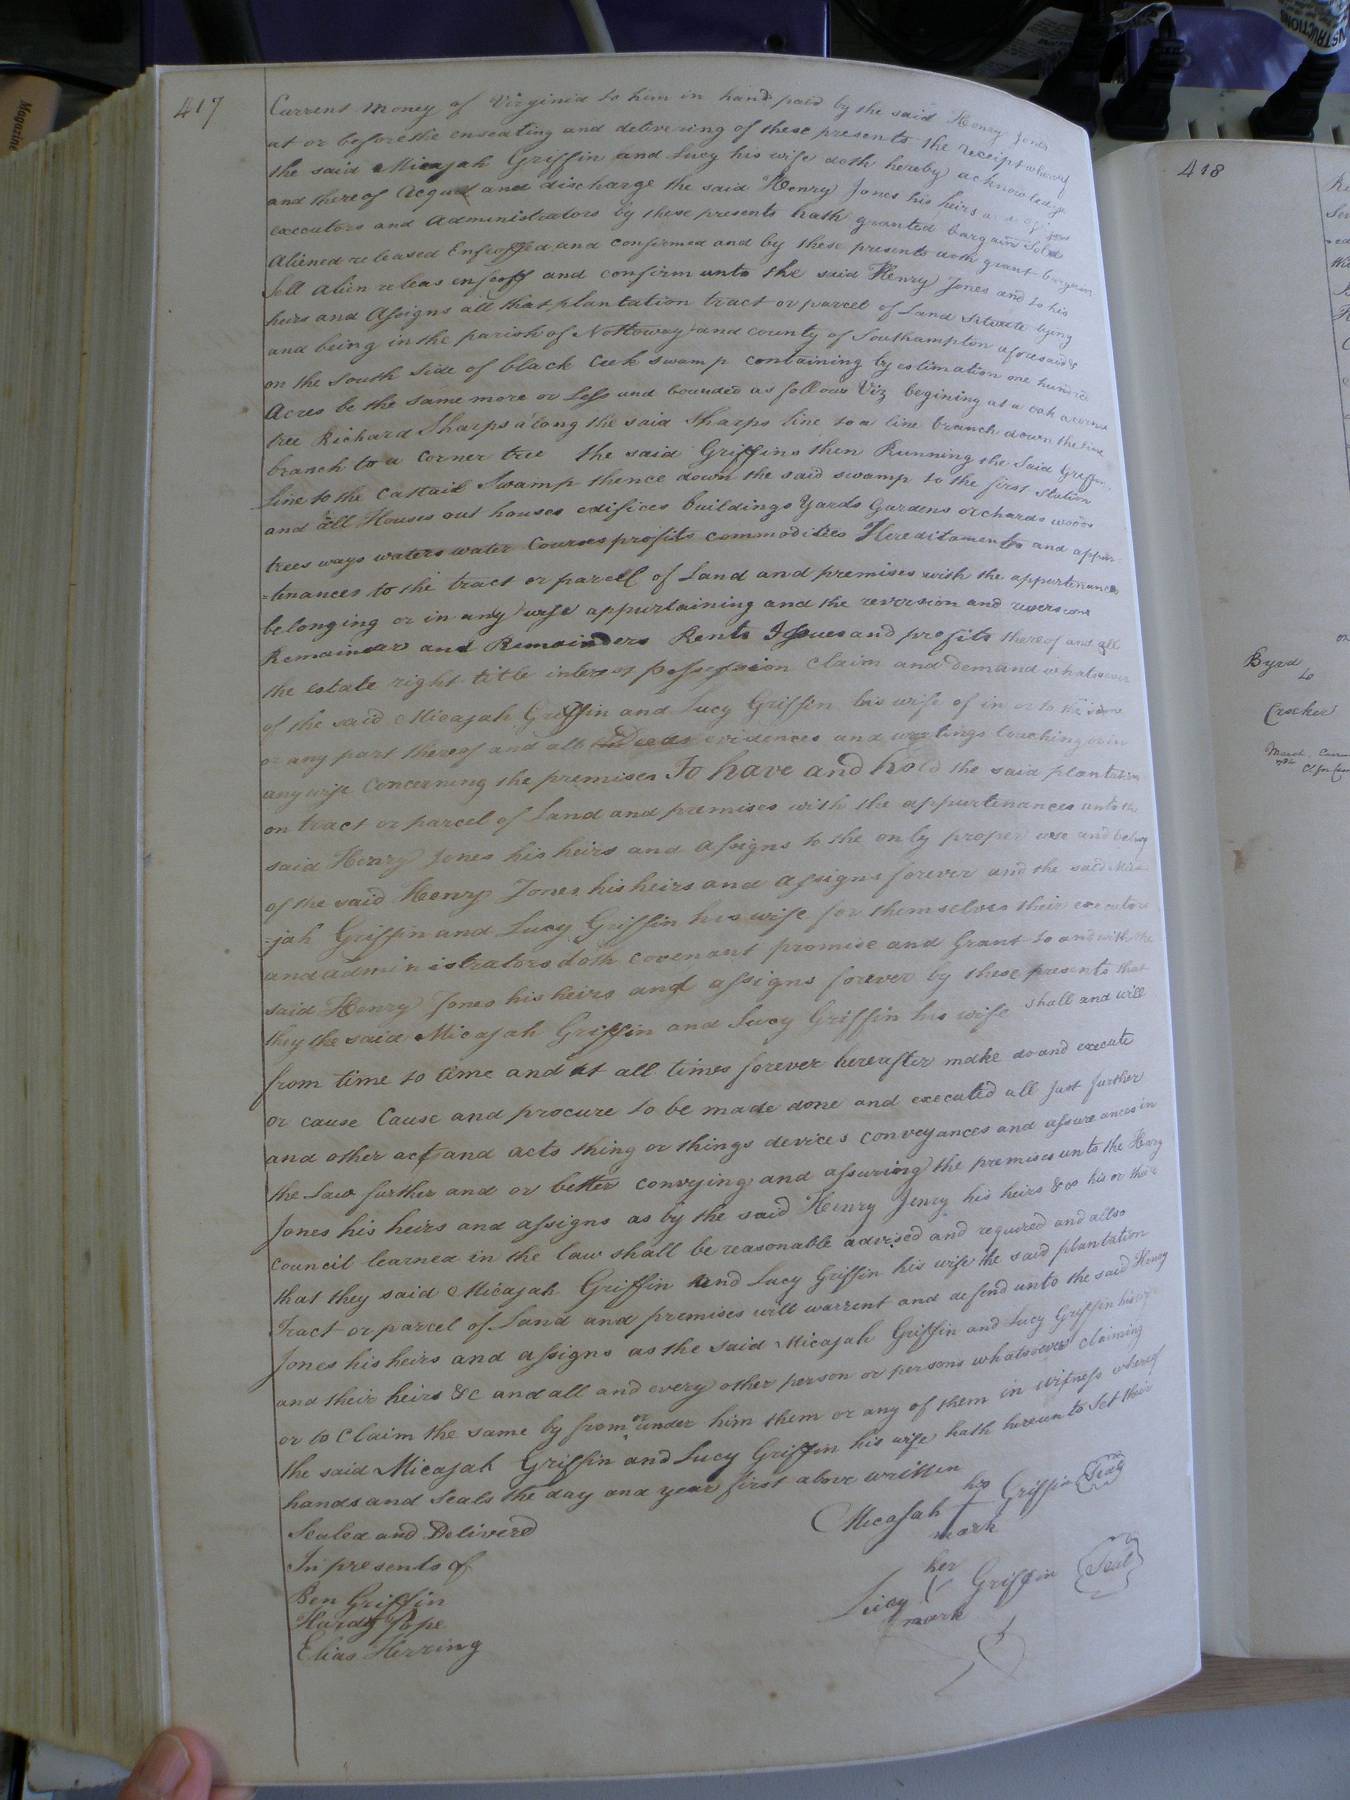 417
Current money of Virginia to him in hand paid by the said Henry Jones
at or before the ensealing and delivering of these presents the receipt whereof
the said Micajah Griffin and Lucy his wife doth hereby acknowledge
and thereof acquit and discharge the said Henry Jones his heirs
executors and administrators by these presents hath granted bargain Sold
Aliened released Enfeoffed and confirmed and by these presents doth grant bargain
Sell alien releas enfeoff and confirm unto the said Henry Jones and to his
heirs and Assigns all that plantation tract or parcel of Land Situate lying
and being in the parish of Nottoway and county of Southampton aforesaid &
on the South side of black Creek swamp containing by estimation one hundred
Acres be the same more or Less and bounded as follows Viz begining at a oak a corner
tree Richard Sharps along the said Sharps line to a line branch down the line
branch to a corner tree the said Griffins then Running the Said Griffins
Line to the Cattail Swamp thence down the said swamp to the first station
and all Houses out houses edifices buildings Yards Gardens orchards woods
trees ways waters water Courses profits commodities Hereditaments and appur-
-tenances to the tract or parcell of Land and premises with the appurtenances
belonging or in any wise appurtaining and the reversion and reversions
Remainder and Remainders Rents Issues and profits thereof and all
the estate right title interest possession claim and demand whatsoever
of the said Micajah Griffin and Lucy Griffin his wife of in or to the same
or any part thereof and all Deeds evidences and wrtings touching or in
anywise Concerning the premises To have and hold the said plantati
on tract or parcel of Land and premises with the appurtenances unto the
said Henry Jones his heirs and assigns to the only proper use and behoof
of the said Henry Jones his heirs and assigns forever and the said Mica
-jah Griffin and Lucy Griffin his wife for themselves their executors
and administrators doth covenant promise and Grant to and with the
said Henry Jones his heirs and assigns forever by these presents that
they the said Micajah Griffin and Lucy Griffin his wife shall and will
from time to time and at all times forever hereafter make do and execute
or cause Cause and procure to be made done and executed all Just further
and other act and acts thing or things devices conveyances and assureances in
the Law further and or better convying and assuring the premises unto the Henry
Jones his heirs and assigns as by the said Henry Jenry his heirs &c his or their
Council learned in the law shall be reasonable advised and required and allso
that they said Micajah Griffin and Lucy Griffin his wife the said plantation
Tract or parcel of Land and premises will warrent and defend unto the said Henry
Jones his heirs and assigns as the said Micajah Griffin and Lucy Griffin his wife
and their heirs &c and all and every other person or persons whatsoever claiming
or to claim the same by from or under him them or any of them in witness whereof
the said Micajah Griffin and Lucy Griffin his wife hath hereunto Set their
hands and Seals the day and year first above written
Sealed and Deliverd
In presents of
Ben Griffin
Hardy Pope
Elias Herring
his
Micajah Griffin Seal
mark
her
Lucy Griffin Seal
mark
418
Byrd
to
Crocker